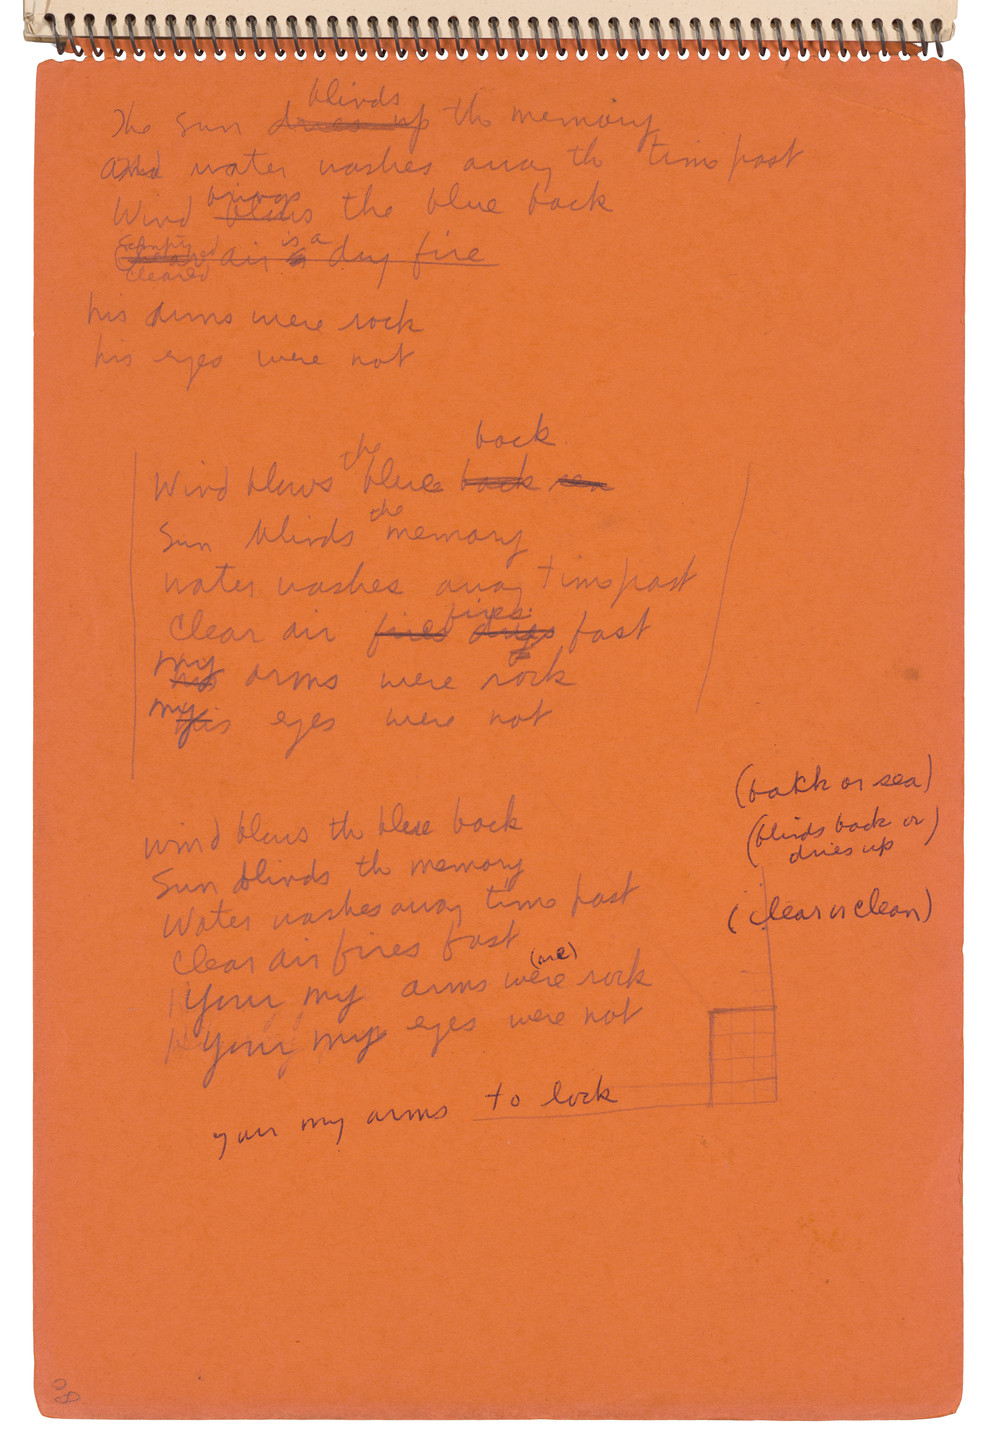 blinds
The sun dries up th memory
and water washes away th tims past
brings
Wind blows the blue back
Empty
is a
air dry fire
cleared
his arms were rock
his eyes were not
back
the
Wind blows blue back sea
the
Sun blinds memory
water washes away tims past
fires
Clear air fires drys fast
my
his arms were rock
my
his eyes were not
(bakk or sea)
(blinds back or)
dries up
wind blows th blue back
Sun blinds th memory
Water washes away tims past
(clear or clean)
Clear air fires fast
(are)
Your my arms were rock
Your my eyes were not
your my arms to lock